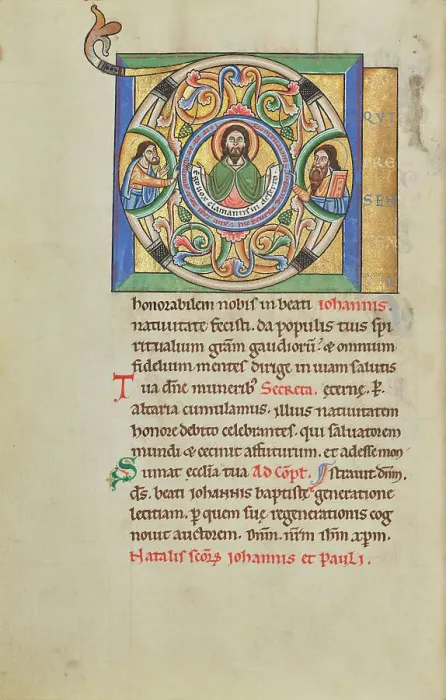 QVI
SEN
ego uox clamantis in deserto
honorabilem nobis in beati iohannis.
natiuitate fecisti. da populis tuis spi
ritualium grãm gaudiorũ. & omnium
fidelium mentes dirige in uiam salutis
Tua dñe munerib; Secreta. eterne. P.
altaria cumulamus. illius natiuitatem
honore debito celebrantes. qui saluatorem
mundi & cecinit affuturum. et adesse mon
Sumat ecclia tua Ad Cõpl. strauit. dñm.
d̃s. beati iohannis baptistę generatione
letitiam. ꝑ quem suę regenerationis cog
nouit auctorem. dñm. nr̃m ihm̃ xp̃m.
Natalis sc̃oꝝ iohannis et pauli.